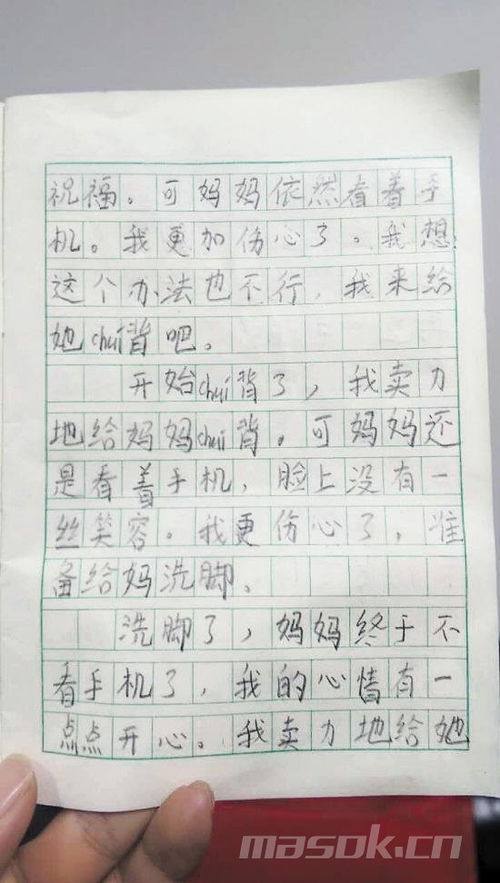 祝福。可妈妈依然看着手
机。我更加伤心了。我想
这个办法也不行，我来给
她chui背吧。
开始chui背了，我卖力
地给妈妈chui背。可妈妈还
是看着手机，脸上没有一
丝笑容。我更伤心了，准
备给妈洗脚。
洗脚了，妈妈终于不
看手机了，我的心情有一
点点开心。我卖力地给她
masok.cn